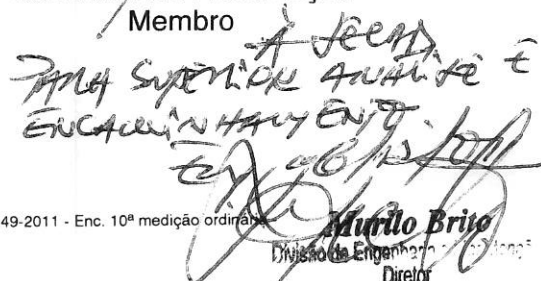 Membro
À SECAD
PARA SUPERIOR ANÁLISE E
ENCAMINHAMENTO.
49-2011 - Enc. 10ª medição ordinária
Murilo Brito
Divisão de Engenharia
Diretor